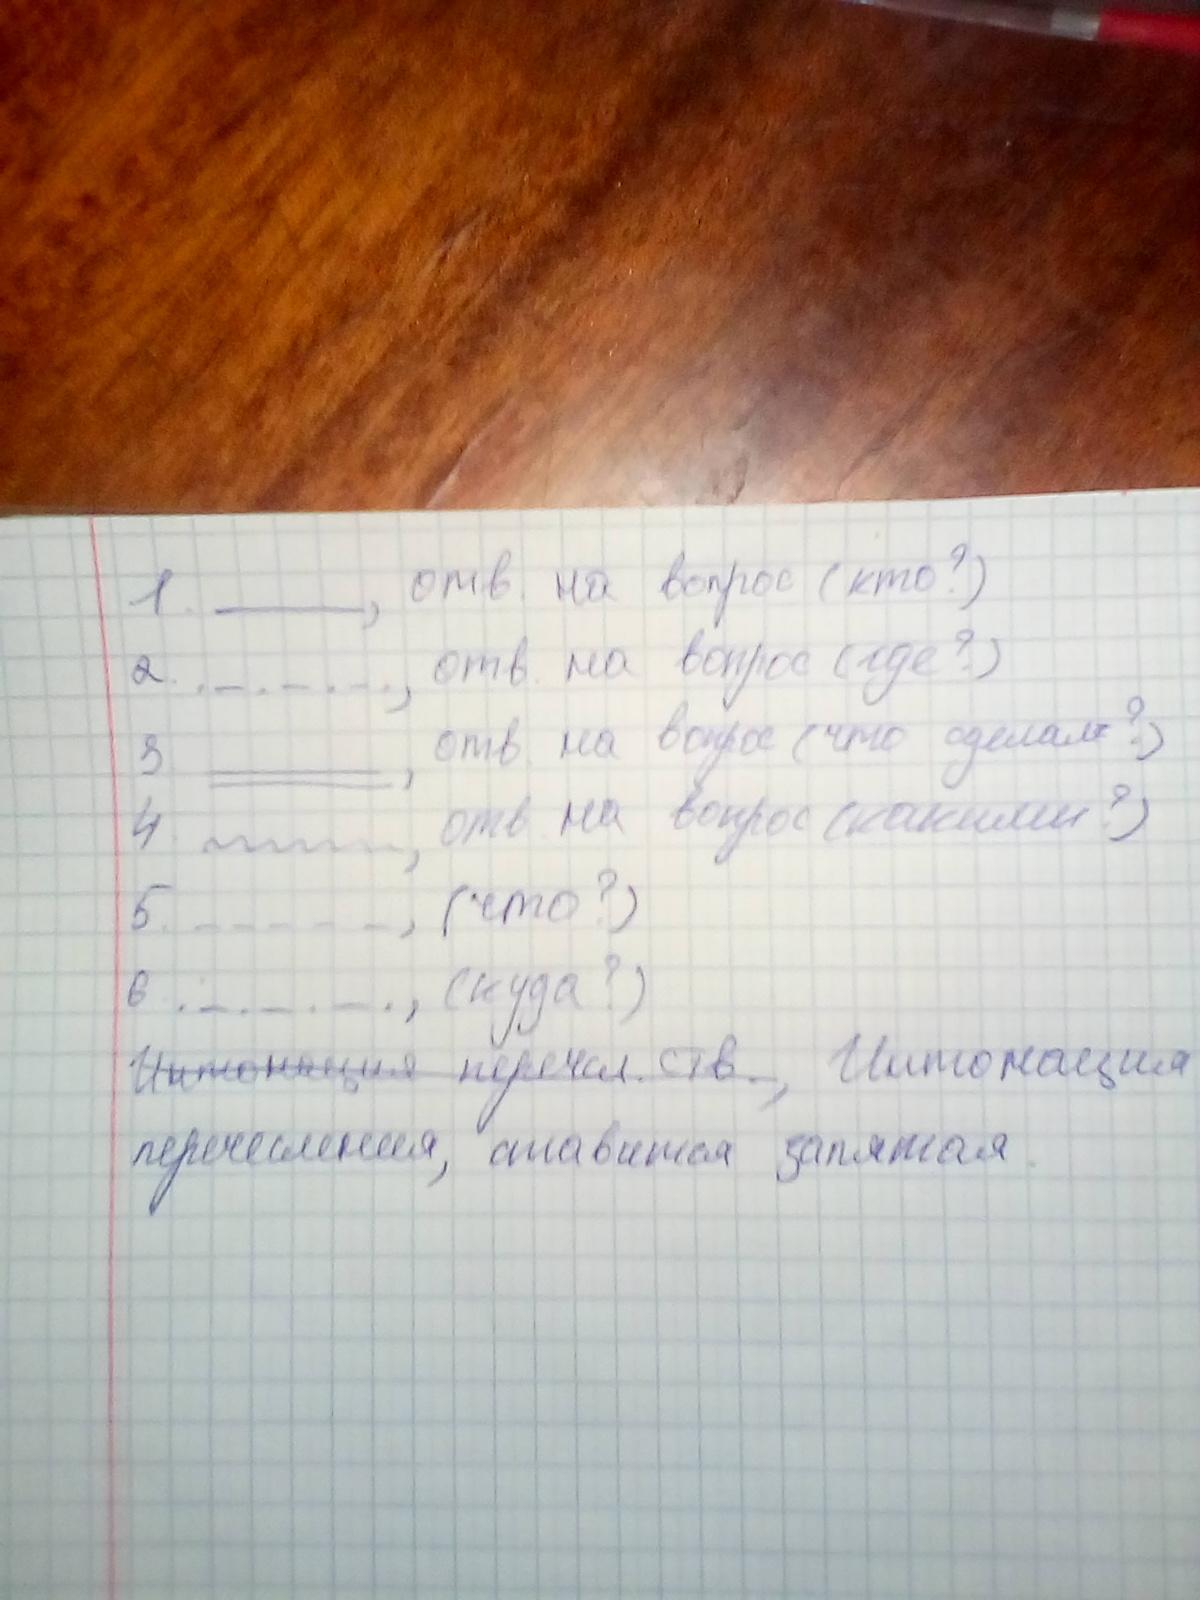 1. ______, отв. на вопрос (кто?)
2. ._._._., отв. на вопрос (где?)
3 ======, отв. на вопрос (что сделал?)
4. ~~~~~, отв. на вопрос (какими?)
5. _ _ _ _ _, (что?)
6 ._._._., (куда?)
Интонация перечсл. ств., Интонация
перечесления, ставится запятая.